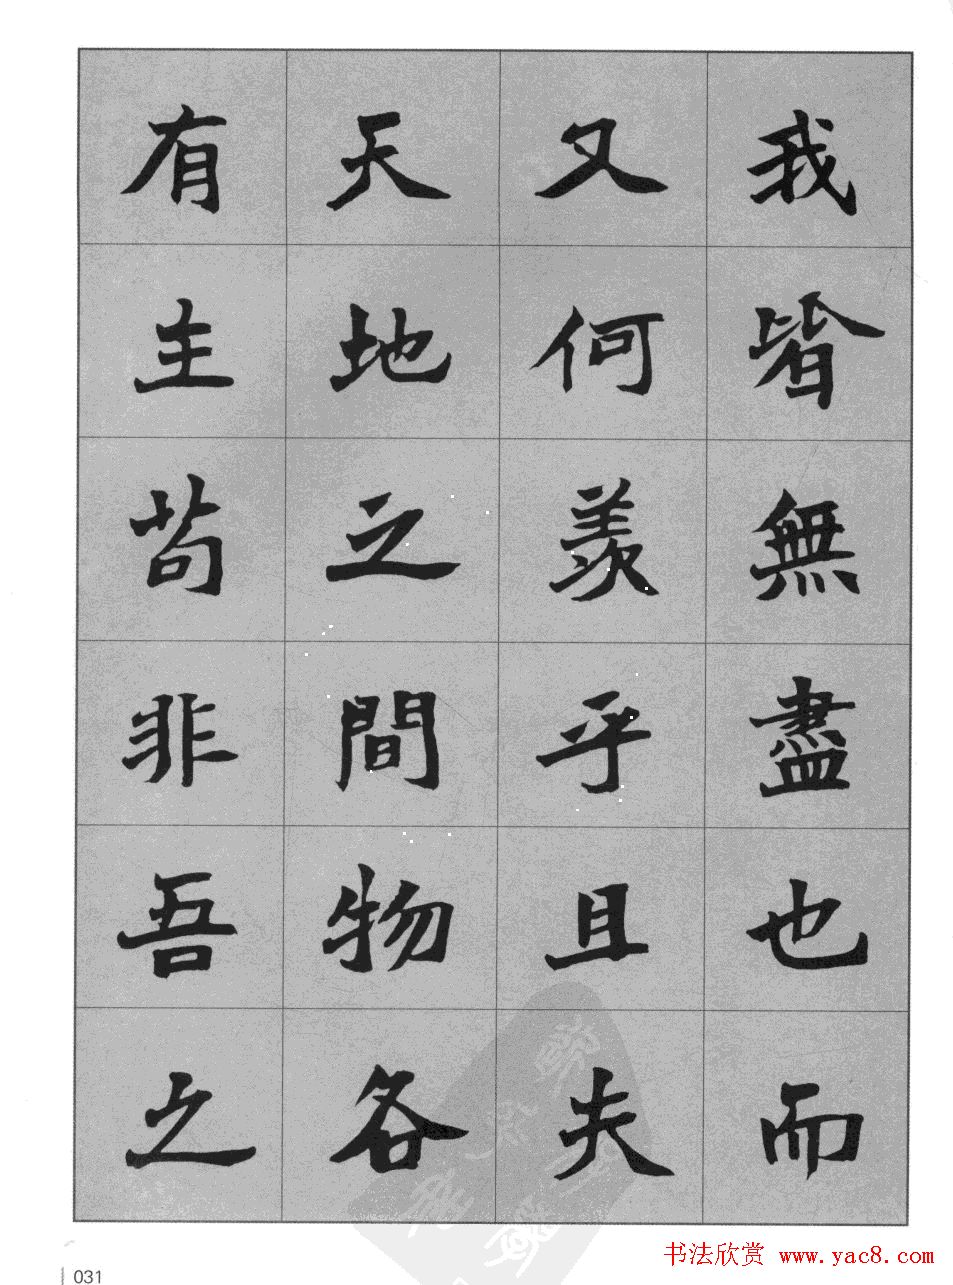 我皆無盡也而
又何羨乎且夫
天地之間物各
有主苟非吾之
书法欣赏 www.yac8.com
031